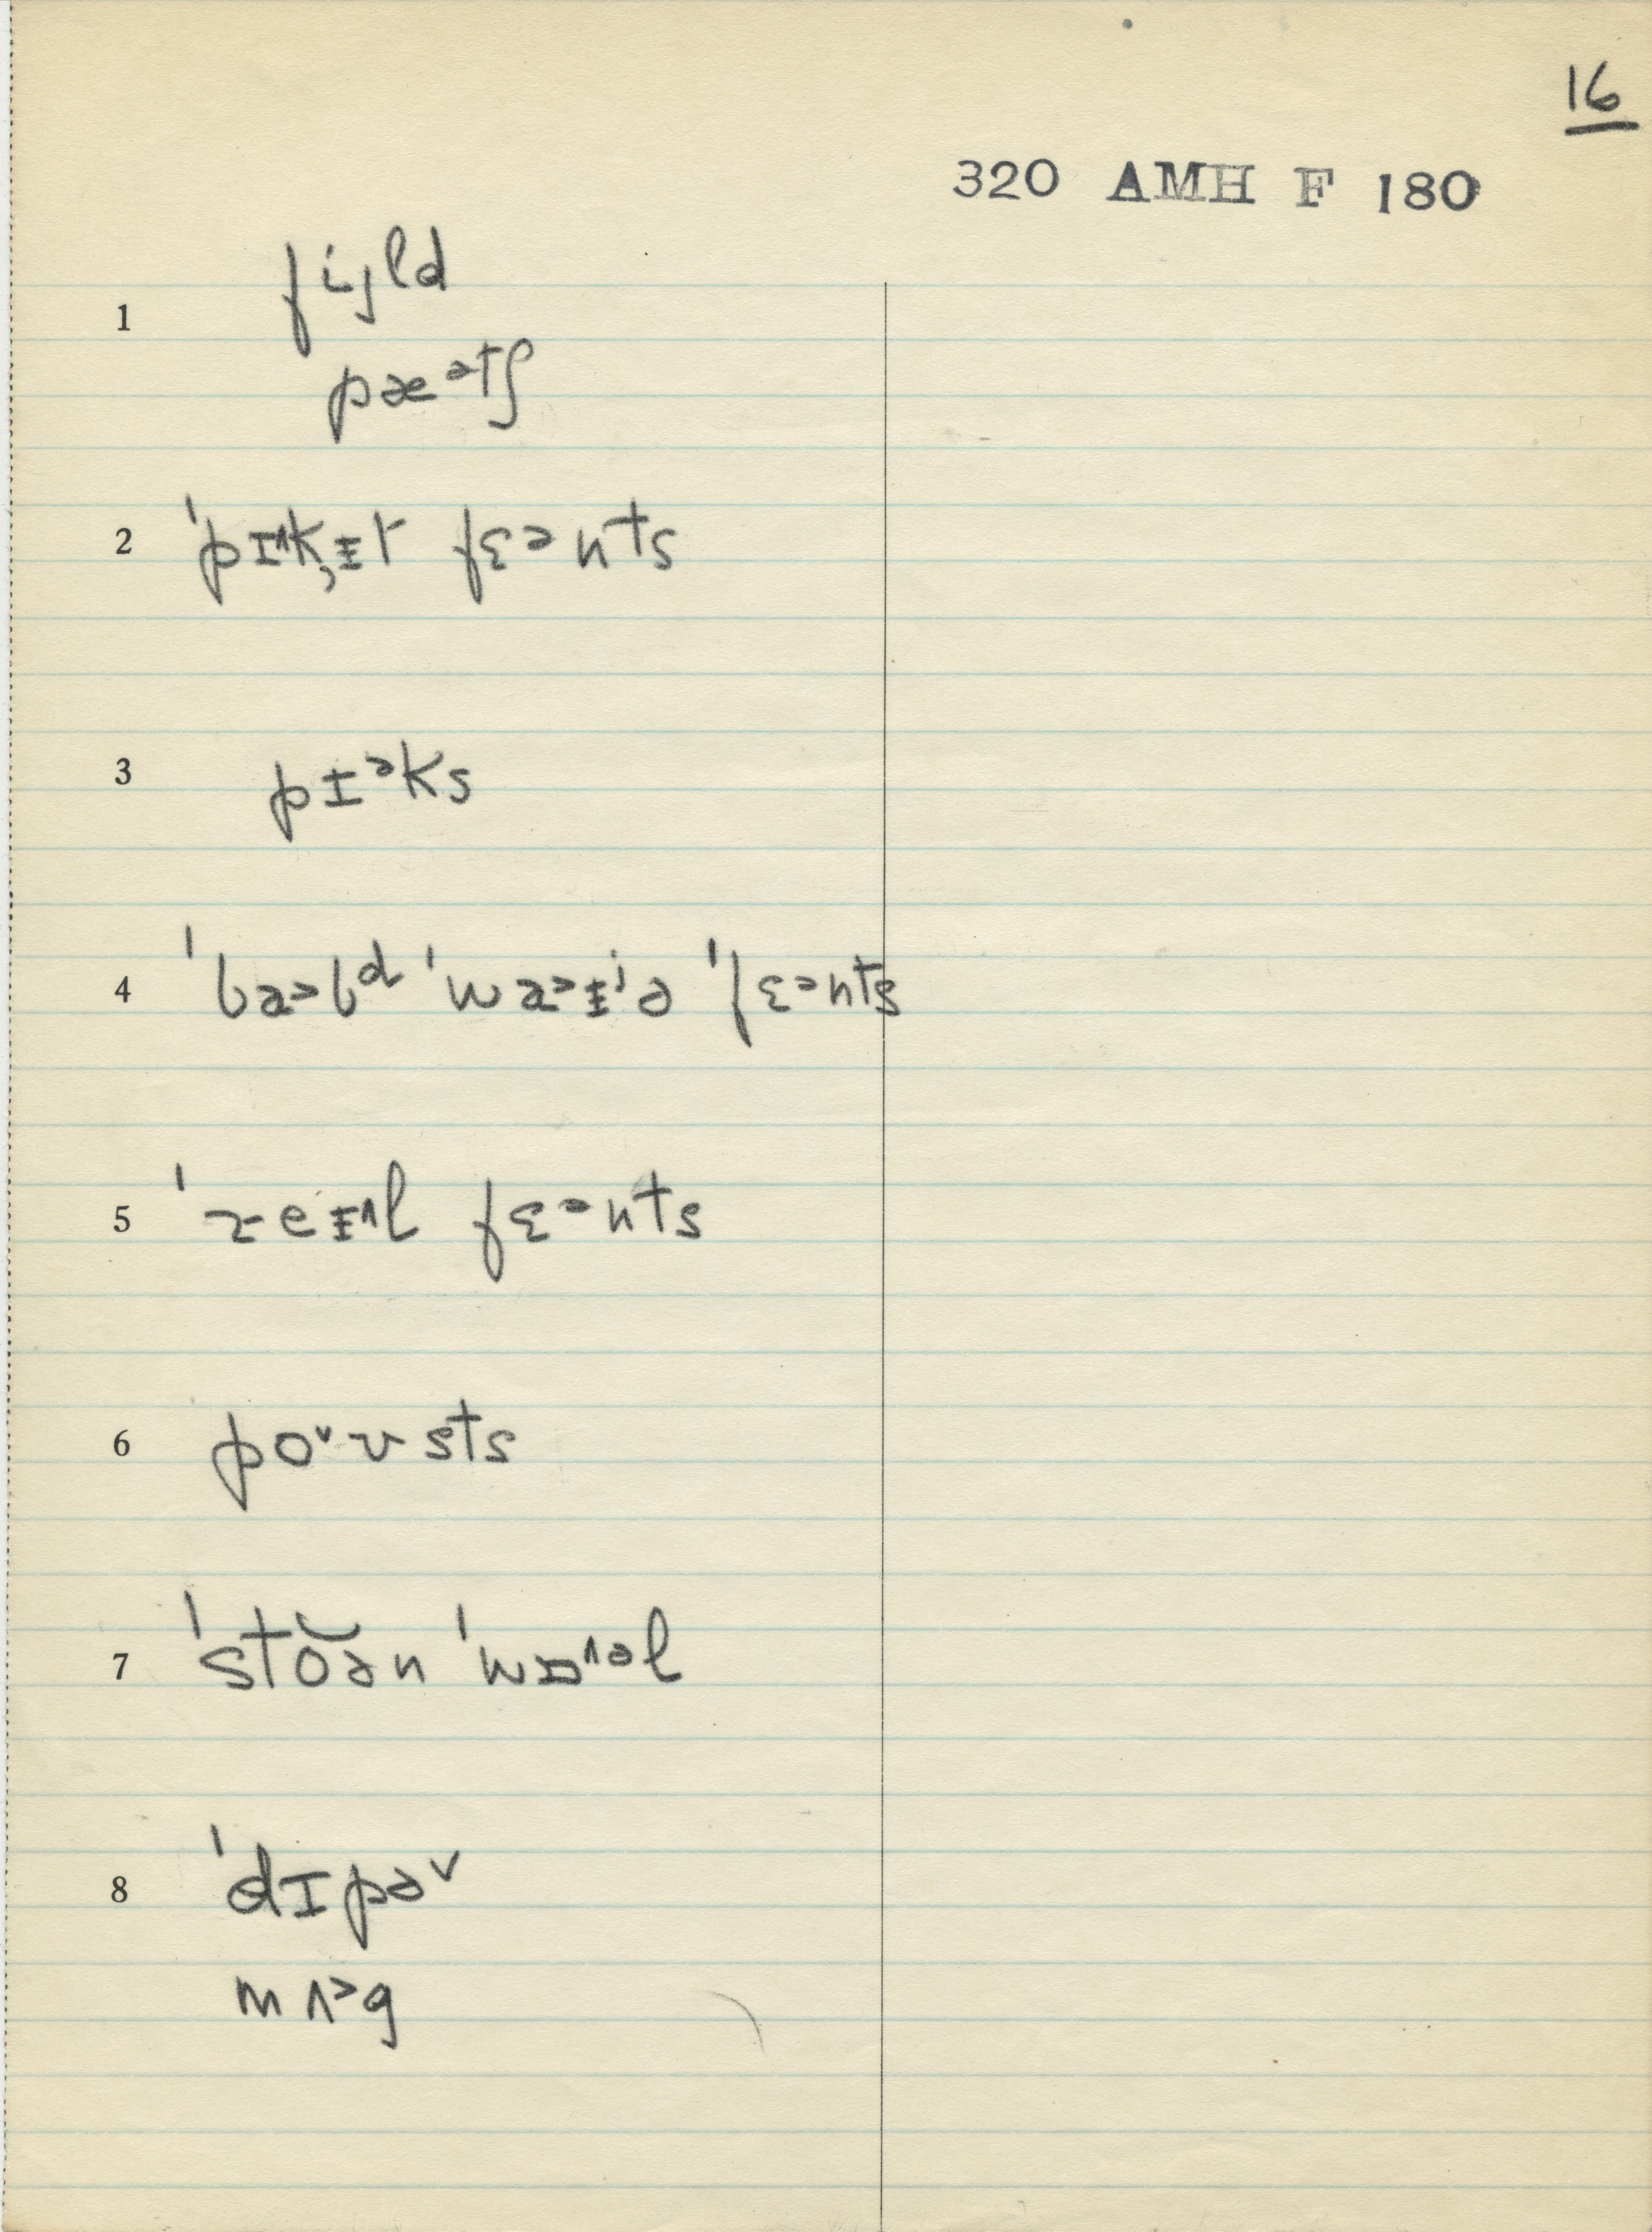 16
320 AMH F 180
1 fiʝld
pæᵊtʃ
2 ˈpɪ^k̦ᵻt fɛᵊnts
3 pɪᵊks
4 ˈba>bᵈ ˈwa>ᵻʲə ˈfɛᵊnts
5 ˈreᵻ^l fɛᵊnts
6 po˅ʊsts
7 ˈstŏən ˈwɒ^ᵊl
8 ˈdɪpə˅
mʌ>g